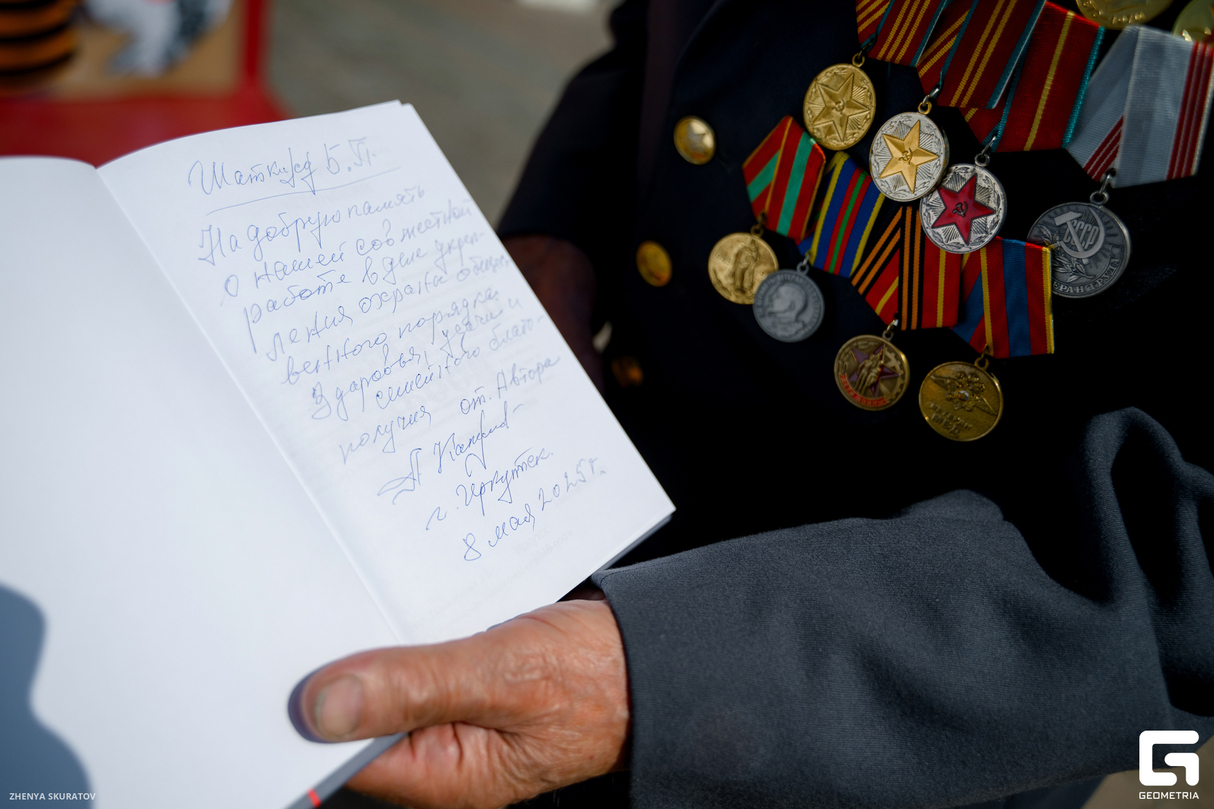 Шаткус Б. П.
На добрую память
о нашей совместной
работе в деле укреп-
ления охраны общест-
венного порядка.
Здоровья, удачи и
семейного благо-
получия от Автора
г. Иркутск.
8 мая 2025 г.
СССР
ВЕТЕРАН
ZHENYA SKURATOV
GEOMETRIA